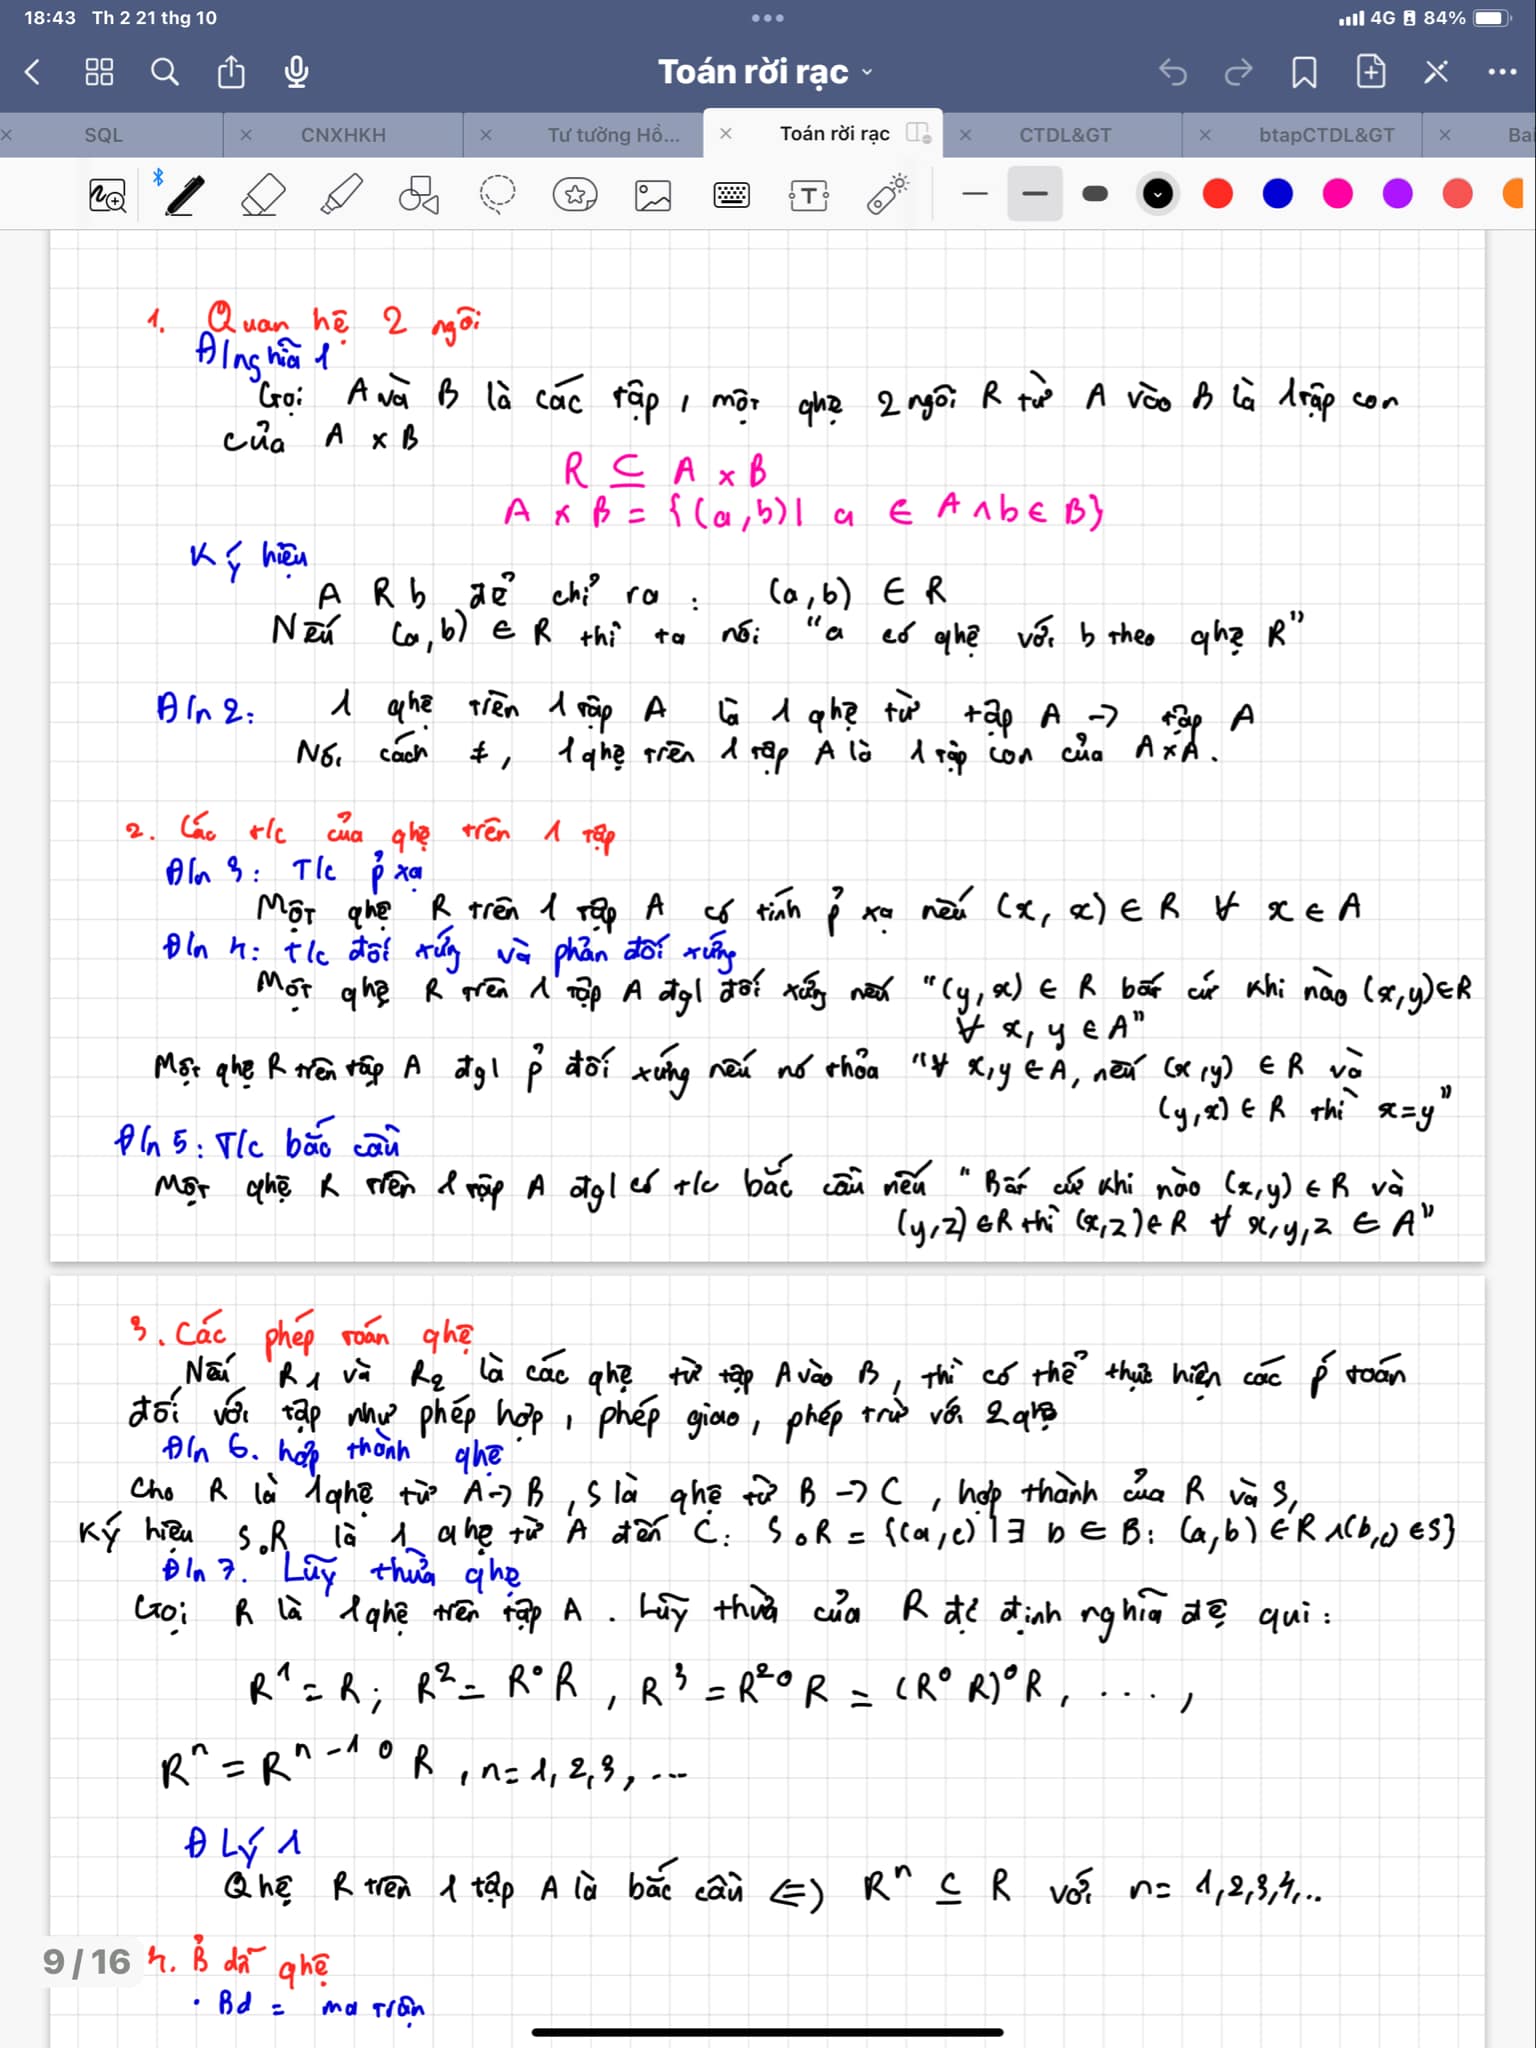 18:43 Th 2 21 thg 10
4G 84%
Toán rời rạc
SQL CNXHKH Tư tường Hồ... Toán rời rạc CTDL&GT btapCTDL&GT Bai
1. Quan hệ 2 ngôi
Đ/nghĩa 1
Gọi A và B là các tập, một qhệ 2 ngôi R từ A vào B là 1 tập con
của A x B
R ⊆ A x B
A x B = {(a,b)| a ∈ A ∧ b ∈ B}
Ký hiệu
A R b để chỉ ra : (a,b) ∈ R
Nếu (a,b) ∈ R thì ta nói "a có qhệ với b theo qhệ R"
Đ/n 2: 1 qhệ trên 1 tập A là 1 qhệ từ tập A -> tập A
Nói cách ≠, 1 qhệ trên 1 tập A là 1 tập con của A x A.
2. Các t/c của qhệ trên 1 tập
Đ/n 3: T/c p̉ xạ
Một qhệ R trên 1 tập A có tính p̉ xạ nếu (x, x) ∈ R ∀ x ∈ A
Đ/n 4: t/c đối xứng và phản đối xứng
Một qhệ R trên 1 tập A đgl đối xứng nếu "(y,x) ∈ R bất cứ khi nào (x,y)∈R
∀ x, y ∈ A"
Một qhệ R trên tập A đgl p̉ đối xứng nếu nó thỏa "∀ x,y ∈ A, nếu (x,y) ∈ R và
(y,x) ∈ R thì x=y"
Đ/n 5: T/c bắc cầu
Một qhệ R trên 1 tập A đgl có t/c bắc cầu nếu "Bất cứ khi nào (x,y) ∈ R và
(y,z) ∈ R thì (x,z) ∈ R ∀ x,y,z ∈ A"
3. Các phép toán qhệ
Nếu R1 và R2 là các qhệ từ tập A vào B, thì có thể thực hiện các ṕ toán
đối với tập như phép hợp, phép giao, phép trừ với 2 qhệ
Đ/n 6. hợp thành qhệ
Cho R là 1 qhệ từ A -> B, S là qhệ từ B -> C, hợp thành của R và S,
Ký hiệu S∘R là 1 qhệ từ A đến C: S∘R = {(a,c) | ∃ b ∈ B: (a,b) ∈ R ∧ (b,c) ∈ S}
Đ/n 7. Lũy thừa qhệ
Gọi R là 1 qhệ trên tập A. Lũy thừa của R đc định nghĩa đệ qui:
R¹ = R; R² = R∘R, R³ = R²∘R = (R∘R)∘R, ....,
Rⁿ = Rⁿ⁻¹∘R, n=1,2,3,...
Đ Lý 1
Qhệ R trên 1 tập A là bắc cầu <=> Rⁿ ⊆ R với n= 1,2,3,4,..
9 / 16
4. B̉ dĩ qhệ
. Bd = ma trận